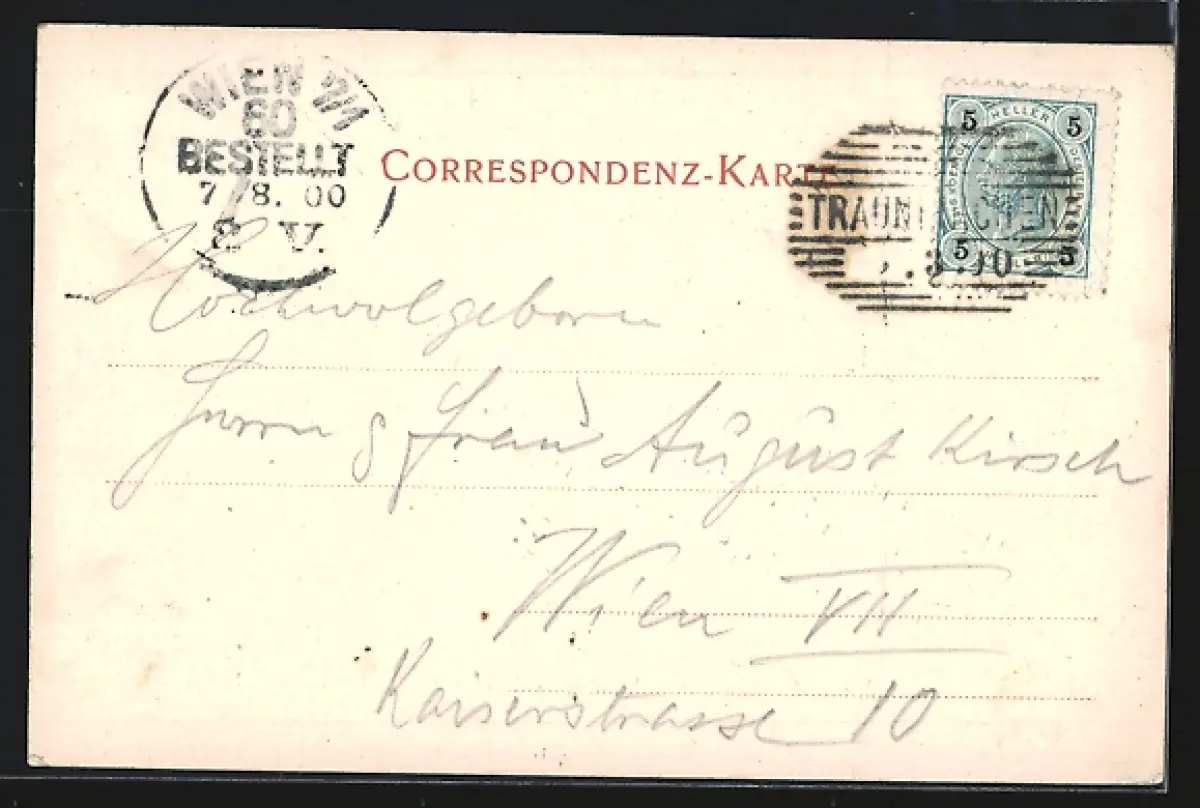 WIEN 7/1
60
BESTELLT
7 8. 00
8 V.
CORRESPONDENZ-KARTE
TRAUNKIRCHEN
5 HELLER 5
5 5
Hochwolgeborn
Herrn & Frau August Kirsch
Wien VII
Kaiserstrasse 10